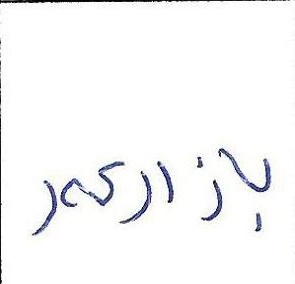 بازار عمر